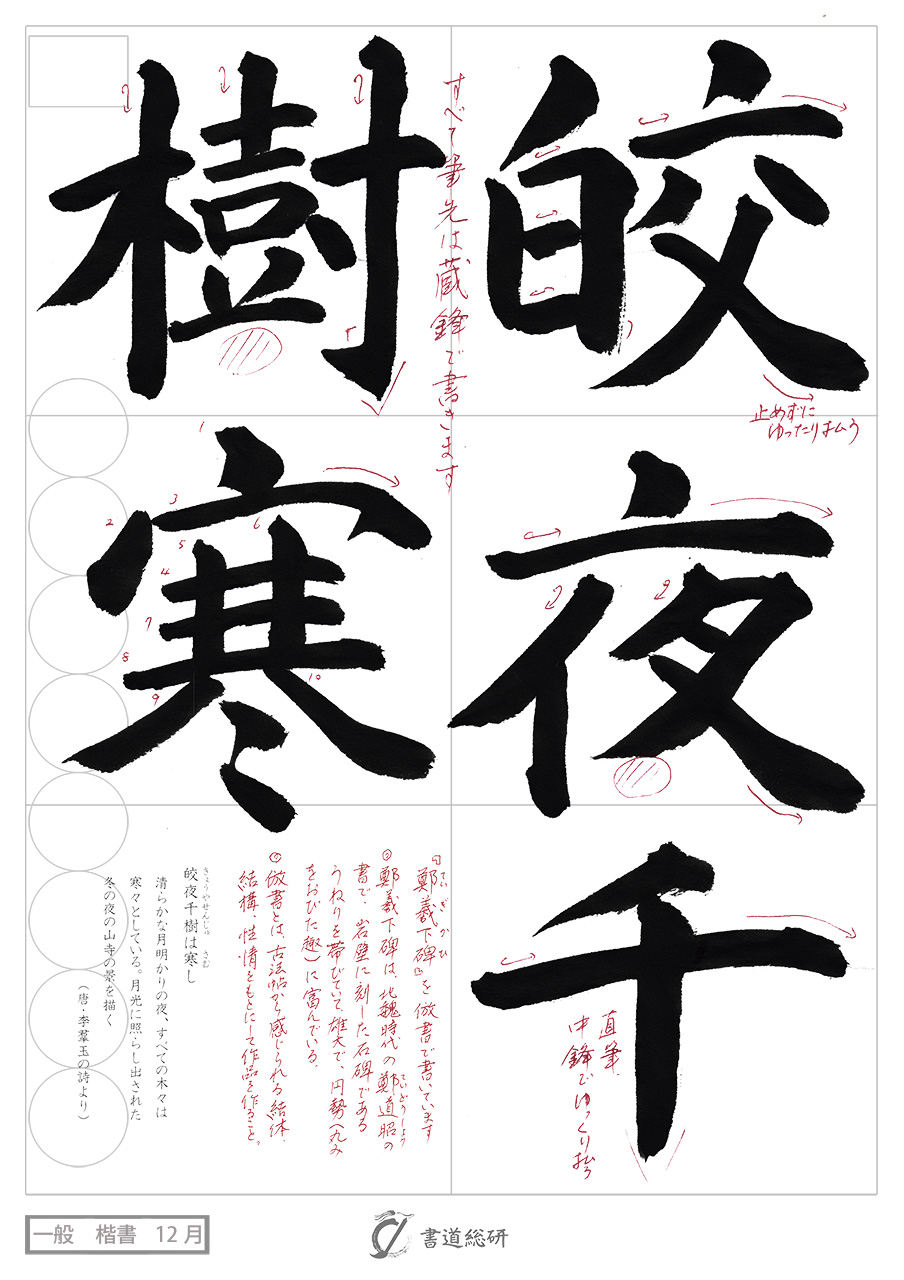 皎夜千
樹寒
すべて筆先は蔵鋒で書きます
止めずに
ゆったり払う
直筆、
中鋒でゆっくり払う
1
2
3
4
5
6
7
8
9
10
『鄭羲下碑』を倣書で書いています
ていぎかひ
◎鄭羲下碑は、北魏時代の鄭道昭の
ていどうしょう
書で、岩壁に刻した石碑である
うねりを帯びていて、雄大で、円勢(丸み
をおびた趣)に富んでいる。
◎倣書とは、古法帖から感じられる結体、
結構、性情をもとにして作品を作ること。
きょうやせんじゅ さむ
皎夜千樹は寒し
清らかな月明かりの夜、すべての木々は
寒々としている。月光に照らし出された
冬の夜の山寺の景を描く
(唐・李羣玉の詩より)
一般 楷書 12月
書道総研